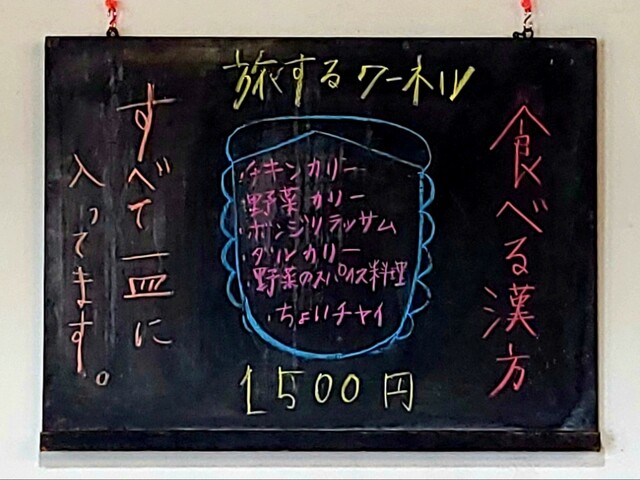 旅するクーネル
食べる漢方
・チキンカリー
・野菜カリー
・ボンジリラッサム
・ダルカリー
・野菜のスパイス料理
・ちょいチャイ
すべて一皿に
入ってます。
1500円